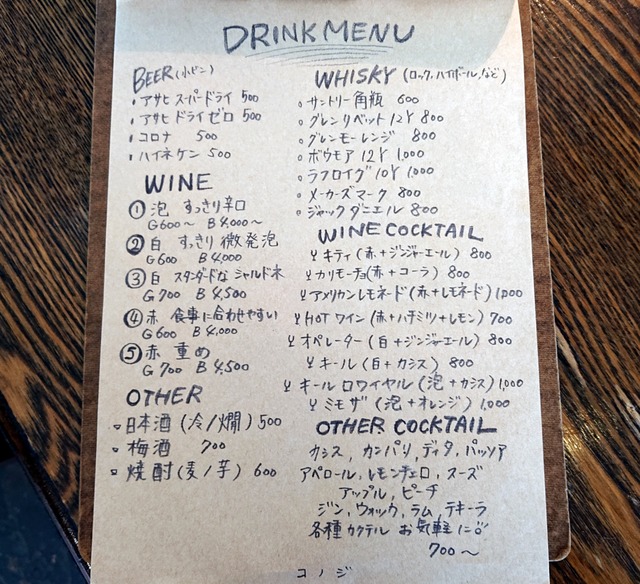 DRINK MENU
BEER (小ビン)
・アサヒ スーパードライ 500
・アサヒ ドライゼロ 500
・コロナ 500
・ハイネケン 500
WINE
① 泡 すっきり辛口
G 600〜 B 4,000〜
② 白 すっきり 微発泡
G 600 B 4,000
③ 白 スタンダードな シャルドネ
G 700 B 4,500
④ 赤 食事に合わせやすい
G 600 B 4,000
⑤ 赤 重め
G 700 B 4,500
OTHER
日本酒 (冷/燗) 500
梅酒 700
焼酎 (麦/芋) 600
WHISKY (ロック, ハイボール, など)
サントリー 角瓶 600
グレンリベット 12Y 800
グレンモーレンジ 800
ボウモア 12Y 1,000
ラフロイグ 10Y 1,000
メーカーズマーク 800
ジャックダニエル 800
WINE COCKTAIL
キティ (赤+ジンジャーエール) 800
カリモーチョ(赤+コーラ) 800
アメリカンレモネード (赤+レモネード) 1,000
HOT ワイン (赤+ハチミツ+レモン) 700
オペレーター (白+ジンジャーエール) 800
キール (白+カシス) 800
キール ロワイヤル (泡+カシス) 1,000
ミモザ (泡+オレンジ) 1,000
OTHER COCKTAIL
カシス, カンパリ, ディタ, パッソア
アペロール, レモンチェロ, スーズ
アップル, ピーチ
ジン, ウォッカ, ラム, テキーラ
各種カクテル お気軽に
700〜
コノジ